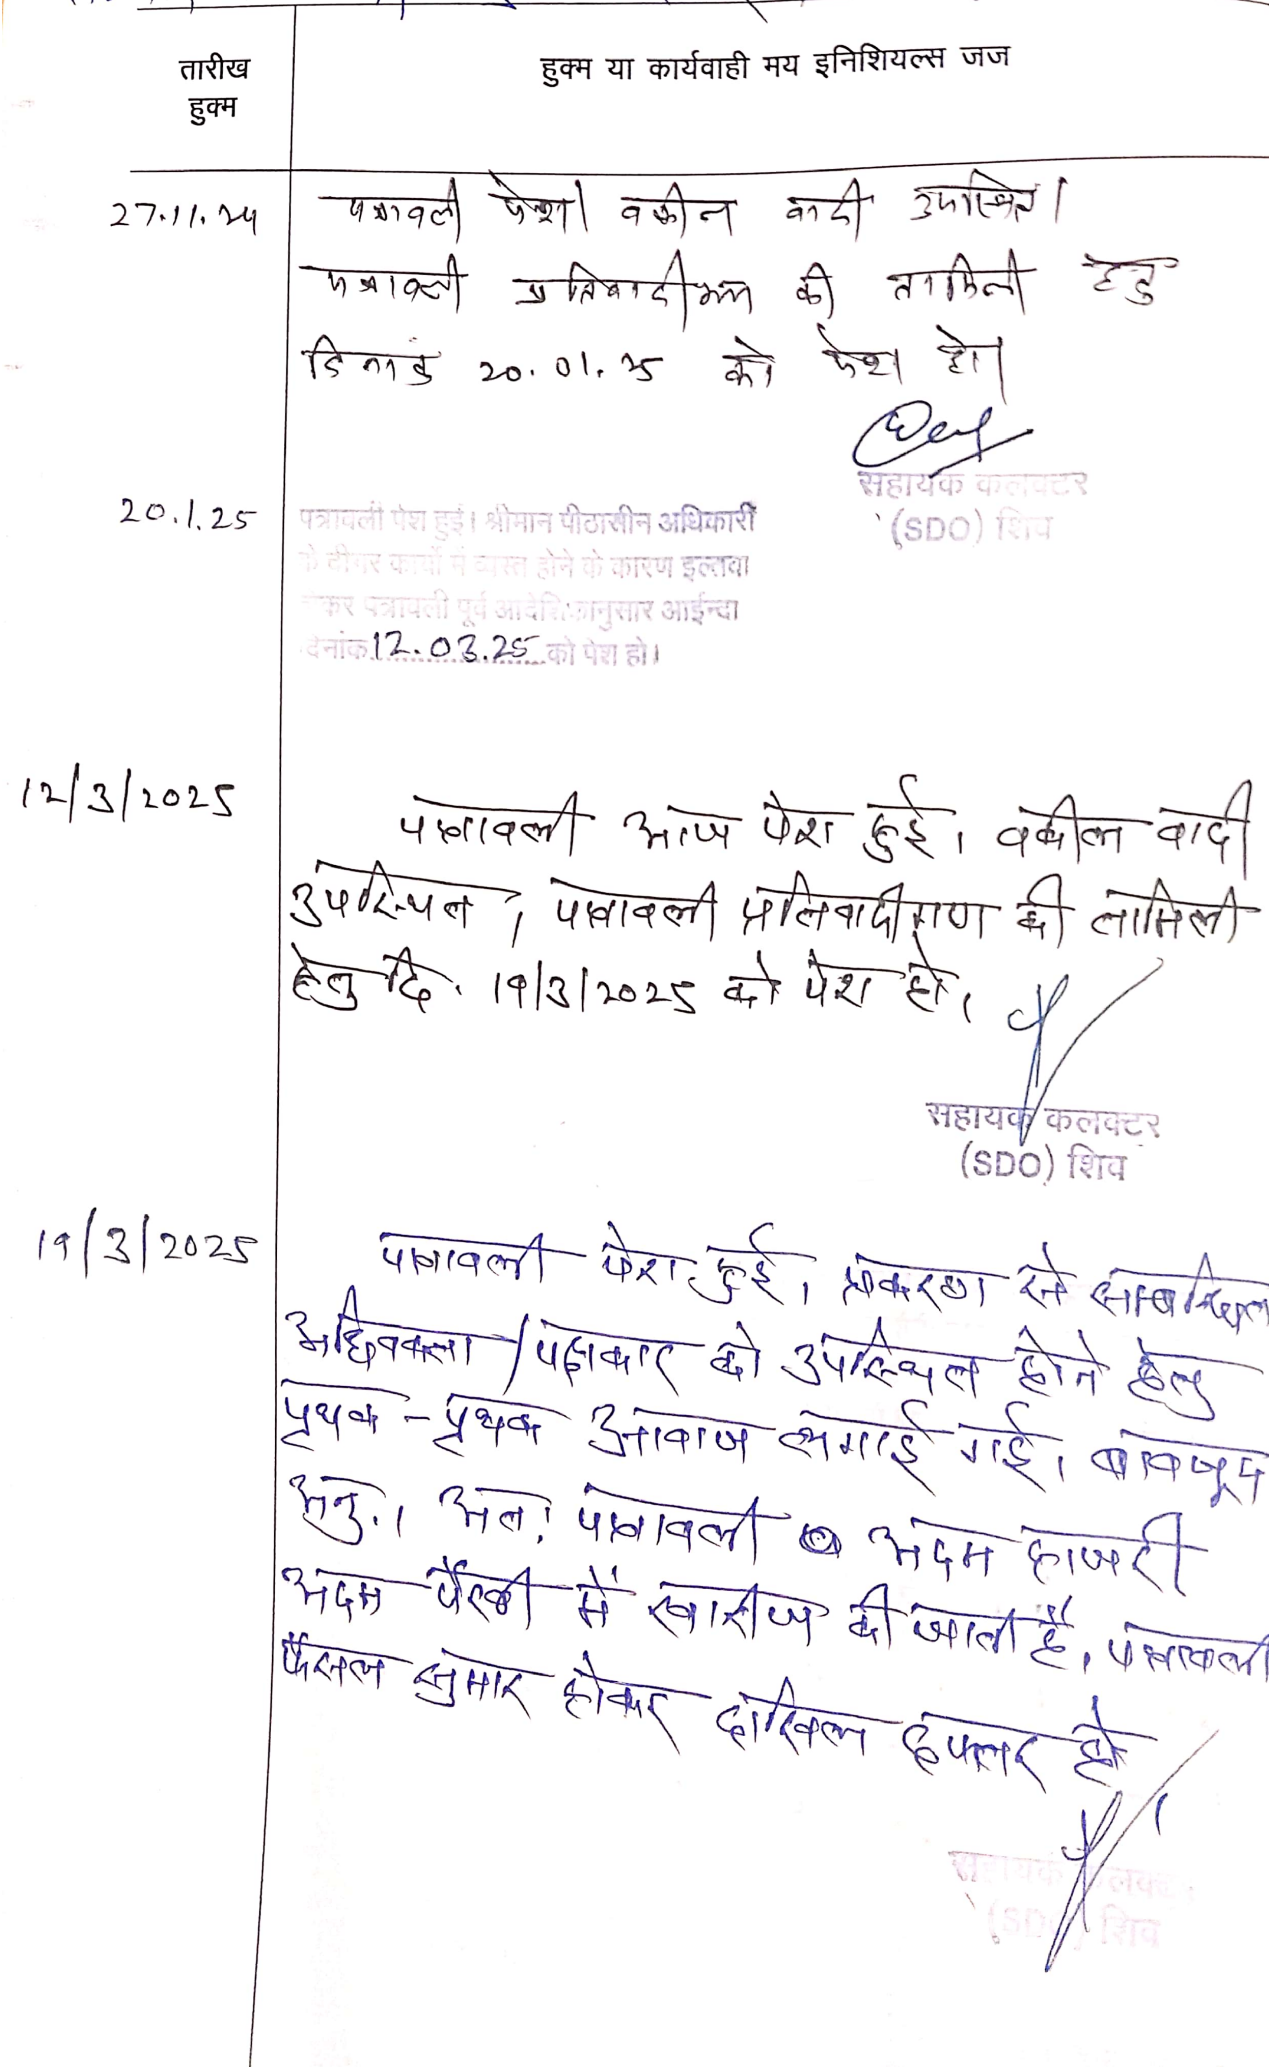 तारीख
हुक्म
हुक्म या कार्यवाही मय इनिशियल्स जज
27.11.24 पत्रावली पेश। वकील वादी उपस्थित।
पत्रावली प्रतिवादीगण की तामिली हेतु
दिनांक 20.01.25 को पेश हो।
सहायक कलक्टर
(SDO) शिव
20.1.25 पत्रावली पेश हुई। श्रीमान पीठासीन अधिकारी
के दीगर कार्यो में व्यस्त होने के कारण इल्तवा
होकर पत्रावली पूर्व आदेशिकानुसार आईन्दा
दिनांक 12.03.25 को पेश हो।
12/3/2025 पत्रावली आज पेश हुई। वकील वादी
उपस्थित, पत्रावली प्रतिवादीगण की तामिली
हेतु दि. 19/3/2025 को पेश हो।
सहायक कलक्टर
(SDO) शिव
19/3/2025 पत्रावली पेश हुई। प्रकरण से सम्बन्धित
अधिवक्ता/पक्षकार को उपस्थित होने हेतु
पृथक-पृथक आवाज लगाई गई। बावजूद
अनु.। अतः पत्रावली अदम हाजरी
अदम पैरवी में खारीज की जाती है। पत्रावली
फैसल सुमार होकर दाखिल दफ्तर हो।
सहायक कलक्टर
(SDO) शिव